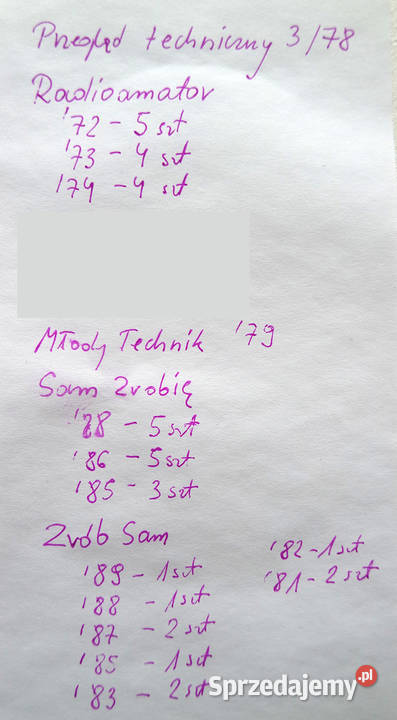 Przegląd techniczny 3/78
Radioamator
'72 - 5 szt
'73 - 4 szt
'74 - 4 szt
Młody Technik '79
Sam Zrobię
'88 - 5 szt
'86 - 5 szt
'85 - 3 szt
Zrób Sam
'89 - 1 szt
'88 - 1 szt
'87 - 2 szt
'85 - 1 szt
'83 - 2 szt
'82 - 1 szt
'81 - 2 szt
Sprzedajemy.pl